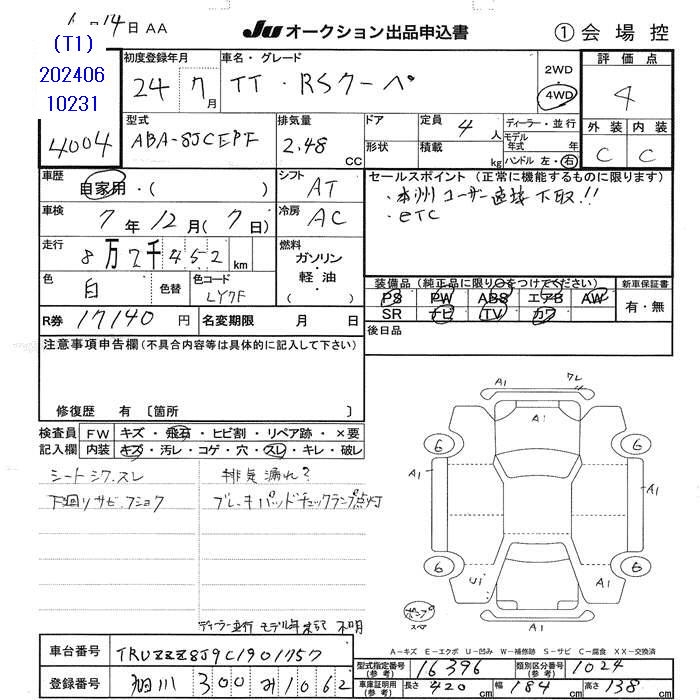 14日 AA
JU オークション出品申込書
① 会場控
(T1)
202406
10231
4004
初度登録年月
24 7月
車名・グレード
TT・RSクーペ
2WD
4WD
評価点
4
外装 内装
C C
型式
ABA-8JCEPF
排気量
2.48 CC
ドア
形状
定員 4人
積載 kg
ディーラー・並行
モデル年式 年
ハンドル 左・右
車歴
自家用・( )
シフト AT
車検
7年12月(7日)
冷房 AC
走行
8万2千452 km
燃料
ガソリン
・
軽油
( )
色 白 色替
色コード LY7F
R券 17140円
名変期限 月 日
セールスポイント (正常に機能するものに限ります)
・本州ユーザー直接下取!!
・ETC
装備品 (純正品に限り○をつけてください)
PS PW ABS エアB AW
SR ナビ TV カワ
新車保証書
有・無
後日品
注意事項申告欄 (不具合内容等は具体的に記入して下さい)
修復歴 有 〔箇所 〕
検査員 FW キズ・飛石・ヒビ割・リペア跡・×要
記入欄 内装 キズ・汚レ・コゲ・穴・スレ・キレ・破レ
シートシワ.スレ
下廻りサビ.フショク
排気漏れ?
ブレーキパッドチェックランプ点灯
ディーラー並行 モデル年未記 不明
A1 クレ
A1
6 6
A1 A1
6 6
U1 A1
A1
スペア
A-キズ E-エクボ U-凹み W-補修跡 S-サビ C-腐食 XX-交換済
車台番号 TRUZZZ8J9C1901757
登録番号 旭川 300 み 1062
型式指定番号 (参考) 16396
類別区分番号 (参考) 1024
車庫証明用 (参考) 長さ 420 cm 幅 184 cm 高さ 138 cm